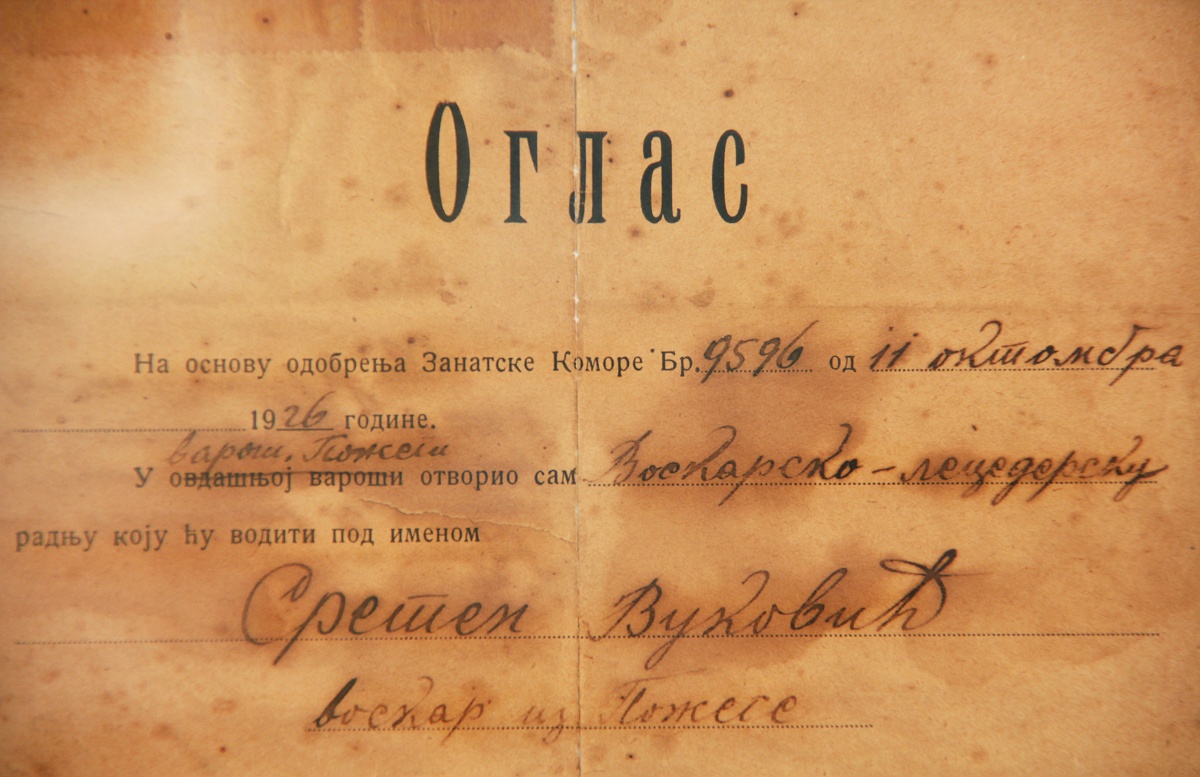 Оглас
На основу одобрења Занатске Коморе Бр. 9596 од 11 октомбра
1926 године.
варош. Пожеги
У овдашњој вароши отворио сам Воскарско-лецедерску
радњу коју ћу водити под именом
Сретен Вуковић
воскар из Пожеге